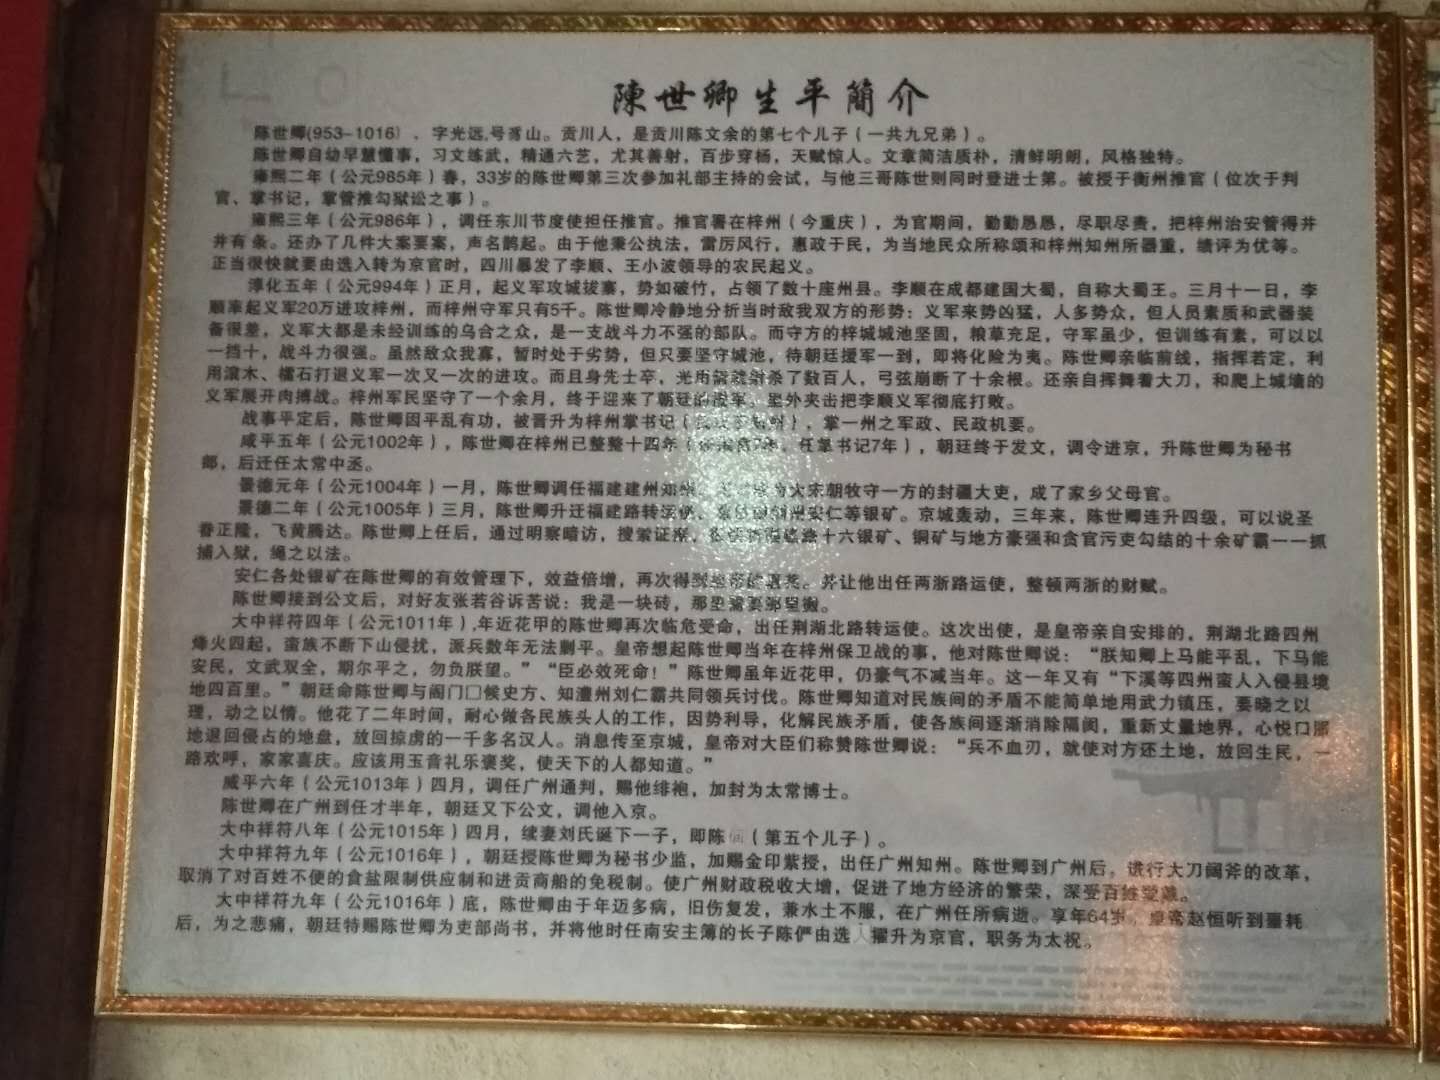 陳世卿生平簡介
陈世卿(953-1016)、字光远,号胥山。贡川人，是贡川陈文余的第七个儿子（一共九兄弟）。
陈世卿自幼早慧懂事，习文练武，精通六艺，尤其善射，百步穿杨，天赋惊人。文章简洁质朴，清鲜明朗，风格独特。
雍熙二年（公元985年）春，33岁的陈世卿第三次参加礼部主持的会试，与他三哥陈世则同时登进士第。被授于衡州推官（位次于判
官、掌书记，掌管推勾狱讼之事）。
雍熙三年（公元986年），调任东川节度使担任推官。推官署在梓州（今重庆），为官期间，勤勤恳恳，尽职尽责，把梓州治安管得井
井有条。还办了几件大案要案，声名鹊起。由于他秉公执法，雷厉风行，惠政于民，为当地民众所称颂和梓州知州所器重，绩评为优等。
正当很快就要由选入转为京官时，四川暴发了李顺、王小波领导的农民起义。
淳化五年（公元994年）正月，起义军攻城拔寨，势如破竹，占领了数十座州县。李顺在成都建国大蜀，自称大蜀王。三月十一日，李
顺率起义军20万进攻梓州，而梓州守军只有5千。陈世卿冷静地分折当时敌我双方的形势：义军来势凶猛，人多势众，但人员素质和武器装
备很差，义军大都是未经训练的乌合之众，是一支战斗力不强的部队。而守方的梓城城池坚固，粮草充足，守军虽少，但训练有素，可以以
一挡十，战斗力很强。虽然敌众我寡，暂时处于劣势，但只要坚守城池，待朝廷援军一到，即将化险为夷。陈世卿亲临前线，指挥若定，利
用滚木、檑石打退义军一次又一次的进攻。而且身先士卒，光用箭就射杀了数百人，弓弦崩断了十余根。还亲自挥舞着大刀，和爬上城墙的
义军展开肉搏战。梓州军民坚守了一个余月，终于迎来了朝廷的援军，里外夹击把李顺义军彻底打败。
战事平定后，陈世卿因平乱有功，被晋升为梓州掌书记（），掌一州之军政、民政机要。
咸平五年（公元1002年），陈世卿在梓州已整整十四年（任推官7年，任掌书记7年），朝廷终于发文，调令进京，升陈世卿为秘书
郎，后迁任太常中丞。
景德元年（公元1004年）一月，陈世卿调任福建建州知州，大宋朝牧守一方的封疆大吏，成了家乡父母官。
景德二年（公元1005年）三月，陈世卿升迁福建路转运使、州安仁等银矿。京城轰动，三年来，陈世卿连升四级，可以说圣
眷正隆，飞黄腾达。陈世卿上任后，通过明察暗访，搜索证据，十六银矿、铜矿与地方豪强和贪官污吏勾结的十余矿霸一一抓
捕入狱，绳之以法。
安仁各处银矿在陈世卿的有效管理下，效益倍增，再次得到皇帝的嘉奖。并让他出任两浙路运使，整顿两浙的财赋。
陈世卿接到公文后，对好友张若谷诉苦说：我是一块砖，那里需要那里搬。
大中祥符四年（公元1011年）,年近花甲的陈世卿再次临危受命，出任荆湖北路转运使。这次出使，是皇帝亲自安排的，荆湖北路四州
烽火四起，蛮族不断下山侵扰，派兵数年无法剿平。皇帝想起陈世卿当年在梓州保卫战的事，他对陈世卿说：“朕知卿上马能平乱，下马能
安民，文武双全，期尔平之，勿负朕望。”“臣必效死命！”陈世卿虽年近花甲，仍豪气不减当年。这一年又有“下溪等四州蛮人入侵县境
地四百里。”朝廷命陈世卿与阁门□候史方、知澧州刘仁霸共同领兵讨伐。陈世卿知道对民族间的矛盾不能简单地用武力镇压，要晓之以
理，动之以情。他花了二年时间，耐心做各民族头人的工作，因势利导，化解民族矛盾，使各族间逐渐消除隔阂，重新丈量地界，心悦口服
地退回侵占的地盘，放回掠虏的一千多名汉人。消息传至京城，皇帝对大臣们称赞陈世卿说：“兵不血刃，就使对方还土地，放回生民，一
路欢呼，家家喜庆。应该用玉音礼乐褒奖，使天下的人都知道。”
咸平六年（公元1013年）四月，调任广州通判，赐他绯袍，加封为太常博士。
陈世卿在广州到任才半年，朝廷又下公文，调他入京。
大中祥符八年（公元1015年）四月，续妻刘氏诞下一子，即陈（第五个儿子）。
大中祥符九年（公元1016年），朝廷授陈世卿为秘书少监，加赐金印紫授，出任广州知州。陈世卿到广州后，进行大刀阔斧的改革，
取消了对百姓不便的食盐限制供应制和进贡商船的免税制。使广州财政税收大增，促进了地方经济的繁荣，深受百姓爱戴。
大中祥符九年（公元1016年）底，陈世卿由于年迈多病，旧伤复发，兼水土不服，在广州任所病逝。享年64岁，皇帝赵恒听到噩耗
后，为之悲痛，朝廷特赐陈世卿为吏部尚书，并将他时任南安主簿的长子陈俨由选人擢升为京官，职务为太祝。